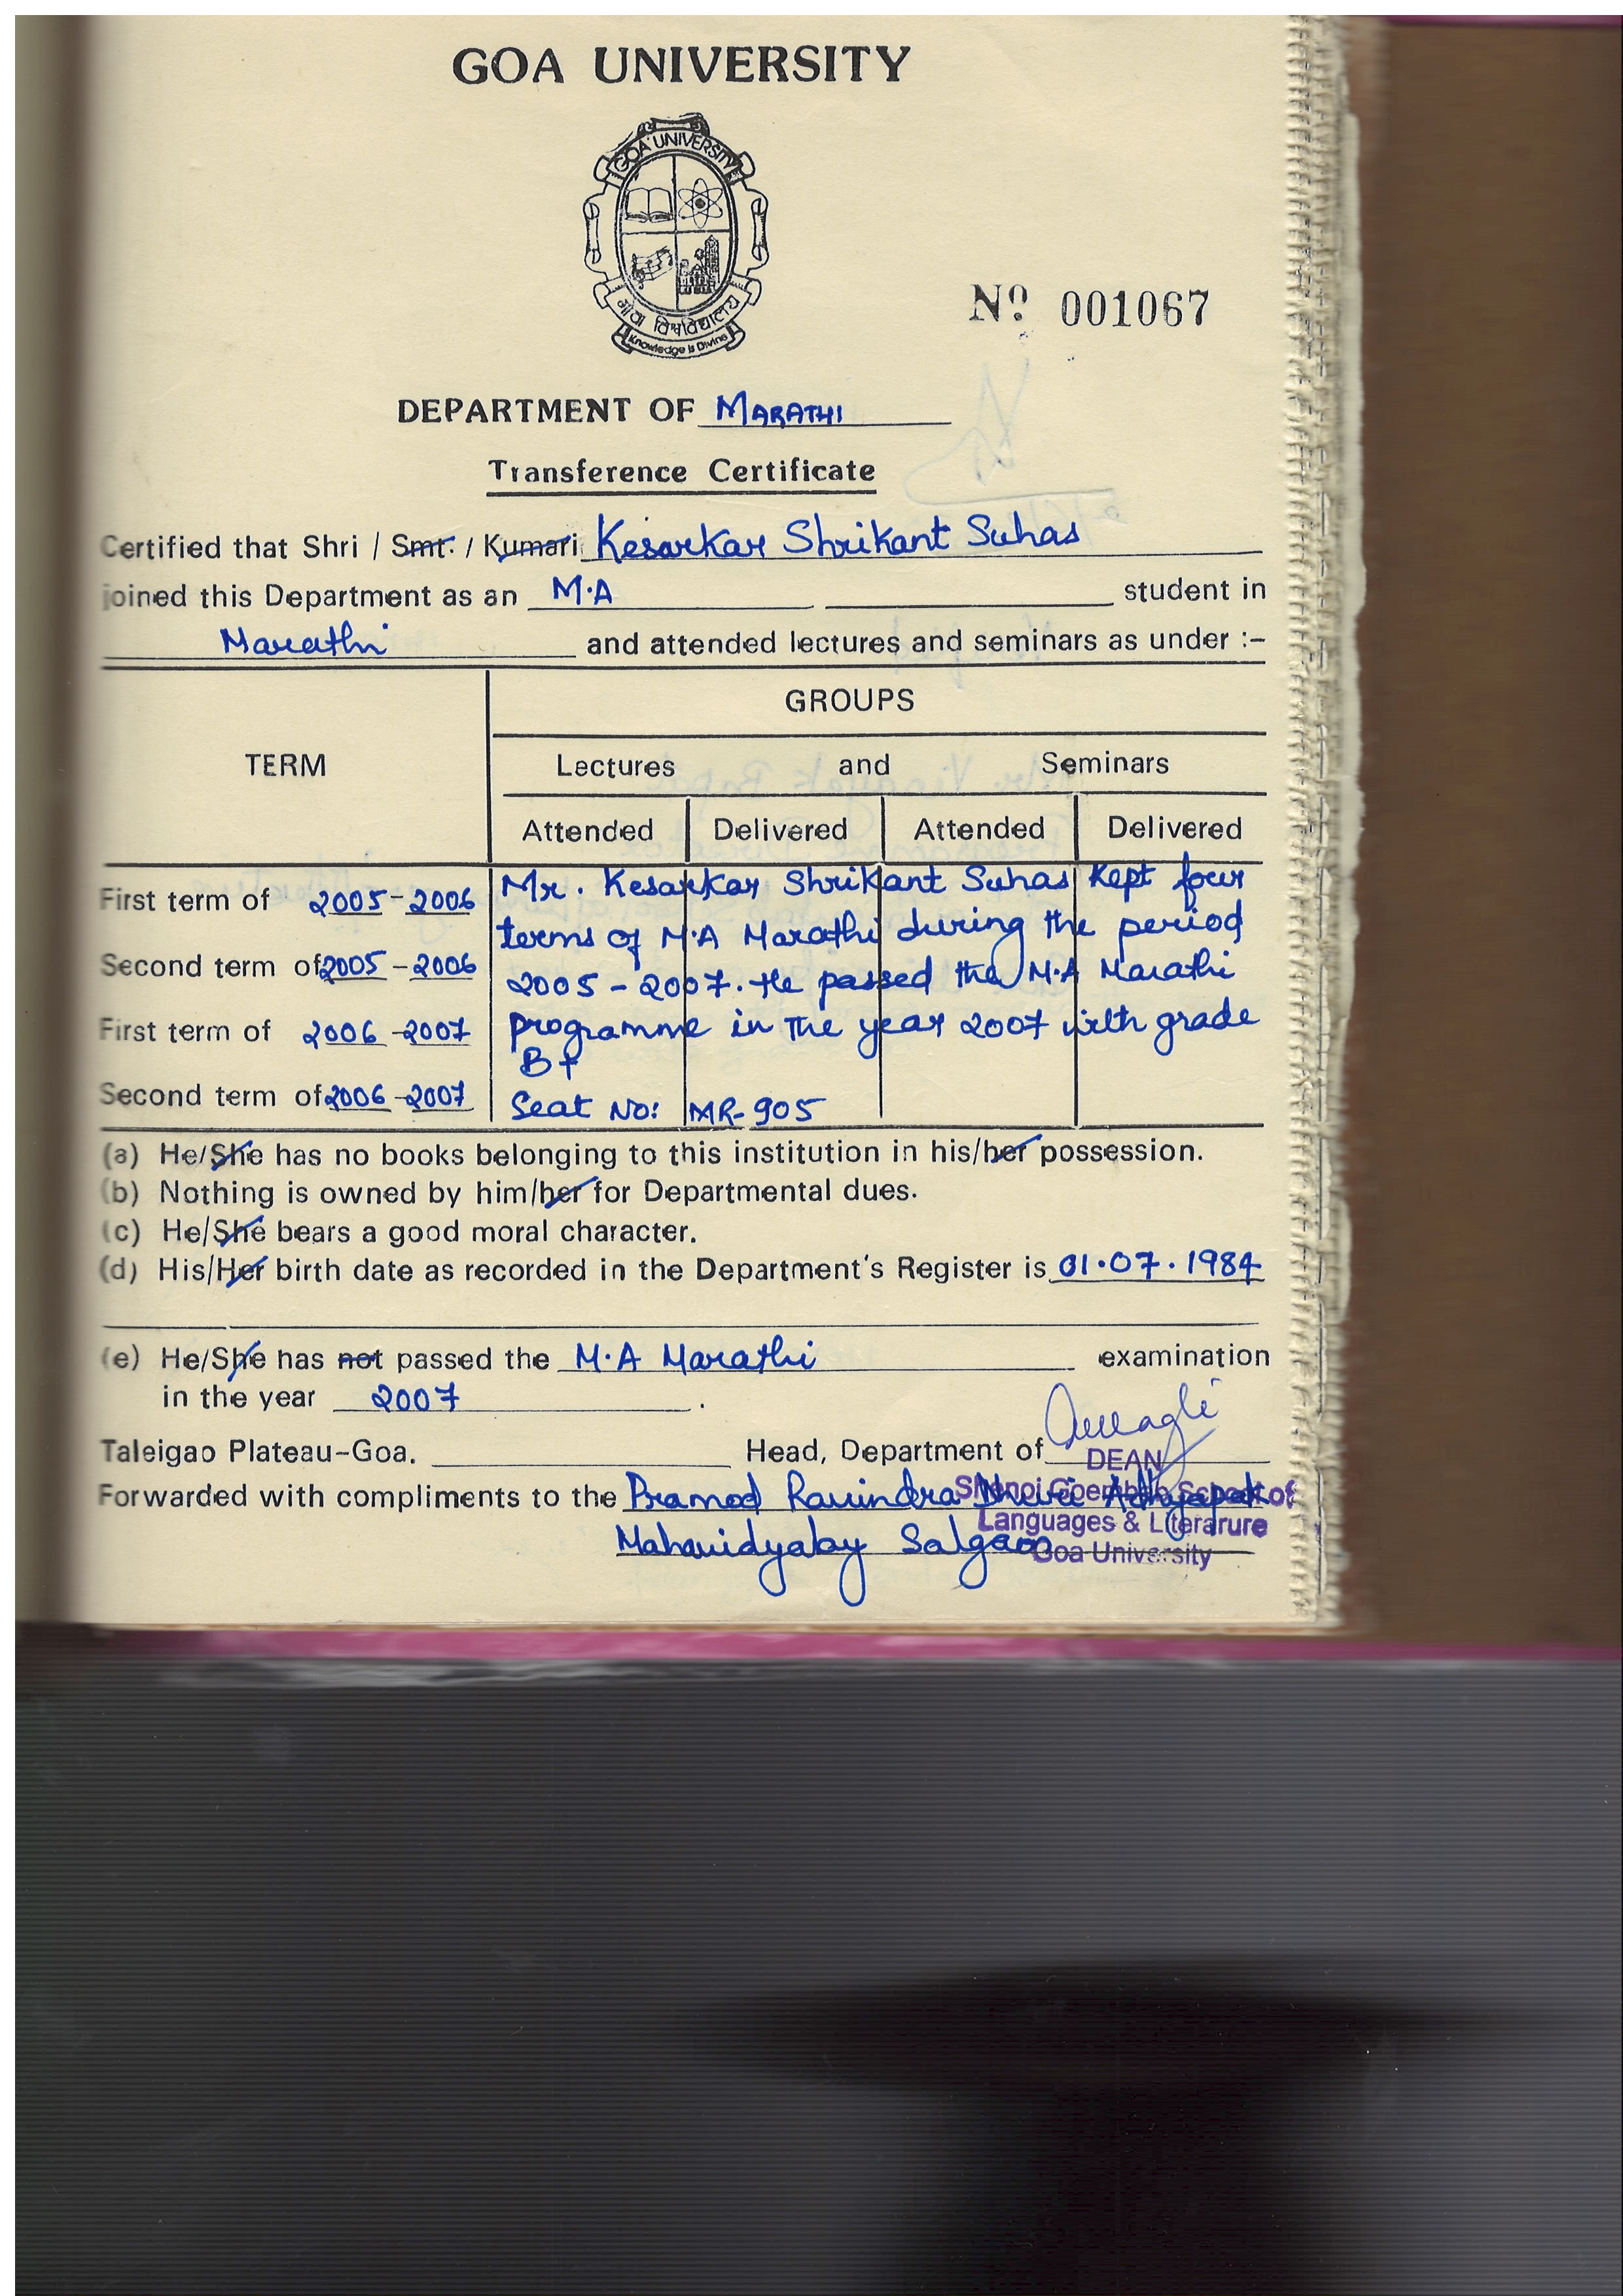 GOA UNIVERSITY
GOA UNIVERSITY
गोंवा विश्वविद्यालय
Knowledge is Divine
Nº 001067
DEPARTMENT OF MARATHI
Transference Certificate
Certified that Shri / Smt. / Kumari Kesarkar Shrikant Suhas
joined this Department as an M.A student in
Marathi and attended lectures and seminars as under :-
GROUPS
TERM Lectures and Seminars
Attended Delivered Attended Delivered
First term of 2005-2006 Mr. Kesarkar Shrikant Suhas Kept four
terms of M.A Marathi during the period
Second term of 2005-2006 2005-2007. He passed the M.A Marathi
First term of 2006-2007 programme in the year 2007 with grade
B+
Second term of 2006-2007 Seat No: MR-905
(a) He/She has no books belonging to this institution in his/her possession.
(b) Nothing is owned by him/her for Departmental dues.
(c) He/She bears a good moral character.
(d) His/Her birth date as recorded in the Department's Register is 01.07.1984
(e) He/She has not passed the M.A Marathi examination
in the year 2007.
Taleigao Plateau-Goa. Head, Department of
DEAN
Forwarded with compliments to the Pramod Ravindra Adhyapak
Shenoi Goembab School of
Languages & Literarure
Mahavidyalay Salgaon
Goa University